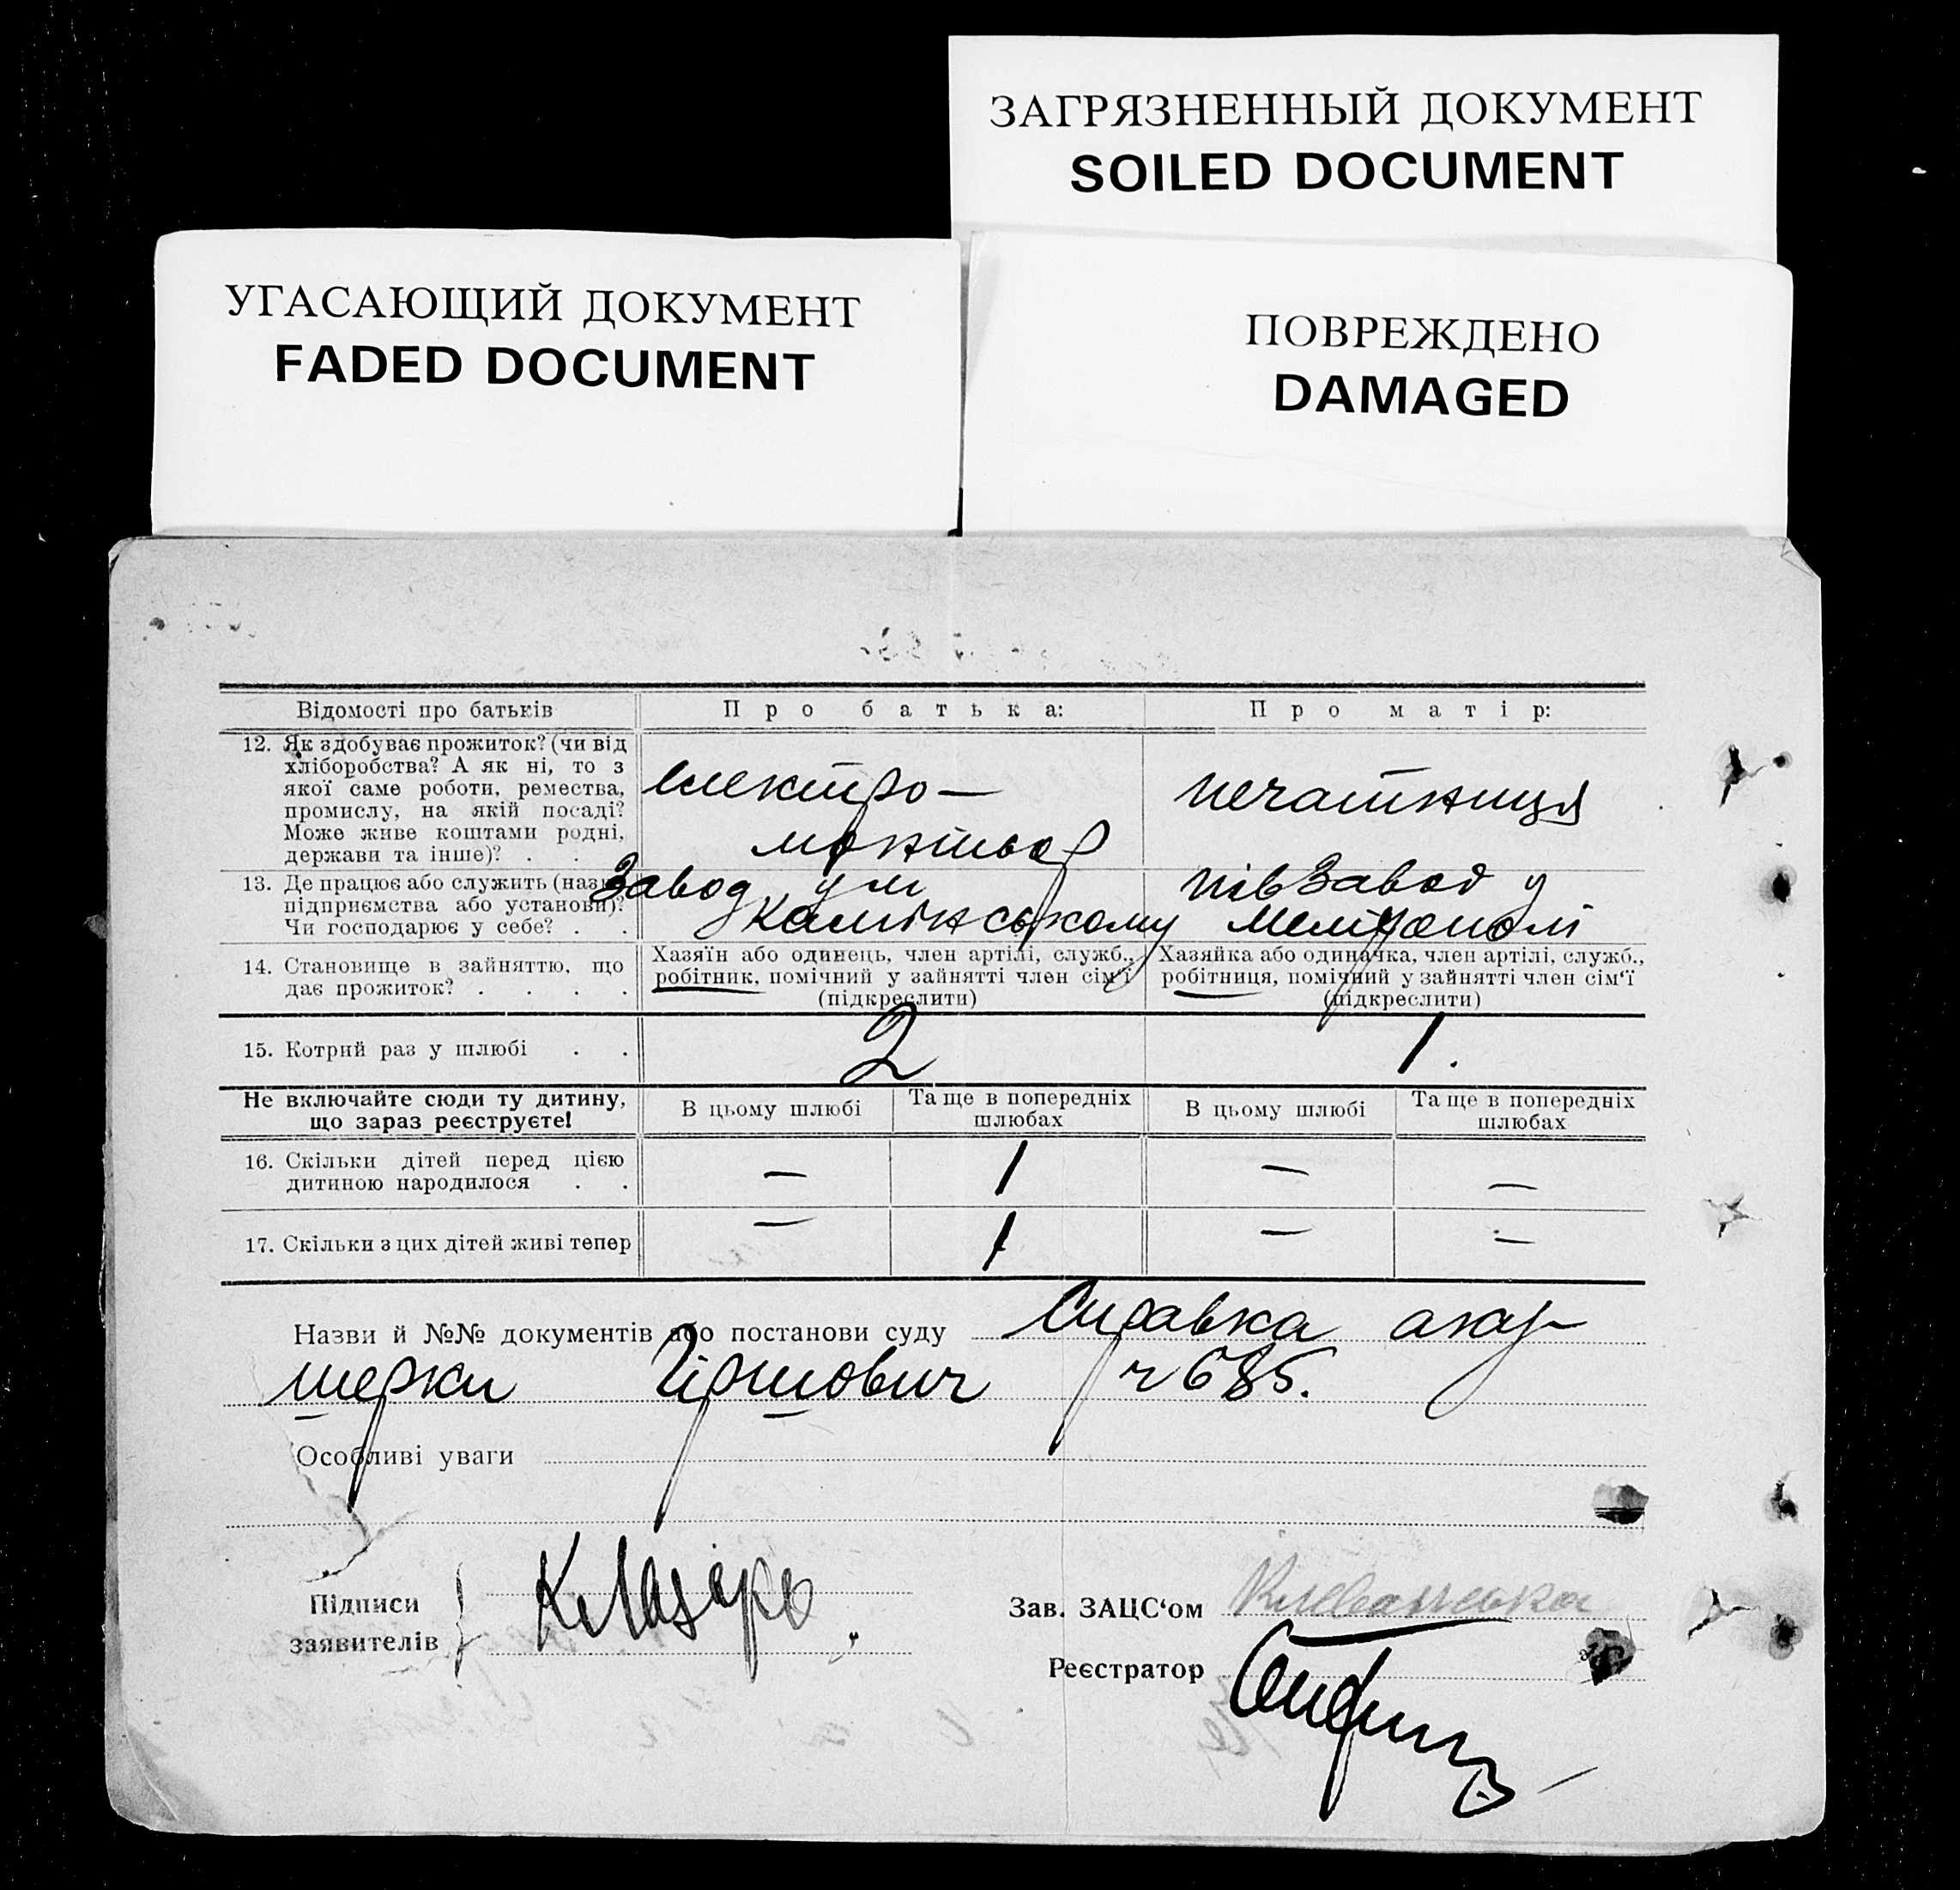 ЗАГРЯЗНЕННЫЙ ДОКУМЕНТ
SOILED DOCUMENT
УГАСАЮЩИЙ ДОКУМЕНТ
FADED DOCUMENT
ПОВРЕЖДЕНО
DAMAGED
Відомості про батьків
Про батька:
Про матір:
12. Як здобуває прожиток? (чи від
хліборобства? А як ні, то з
якої саме роботи, ремества,
промислу, на якій посаді?
Може живе коштами родні,
держави та інше)? . .
електро—
монтьор
печатниця
13. Де працює або служить (назва
підприємства або установи)?
Чи господарює у себе? . .
Завод у м
Камінському
півзавод у
Мелітополі
14. Становище в зайняттю, що
дає прожиток? . . . .
Хазяїн або одинець, член артілі, служб.,
робітник, помічний у зайнятті член сім‘ї
(підкреслити)
Хазяйка або одиначка, член артілі, служб.,
робітниця, помічний у зайнятті член сім‘ї
(підкреслити)
15. Котрий раз у шлюбі . .
2
1.
Не включайте сюди ту дитину,
що зараз реєструєте!
В цьому шлюбі
Та ще в попередніх
шлюбах
В цьому шлюбі
Та ще в попередніх
шлюбах
16. Скільки дітей перед цією
дитиною народилося . .
— 1 — —
17. Скільки з цих дітей живі тепер
— 1 — —
Назви й №№ документів або постанови суду Справка аку-
шерки Гіршович ч 685.
Особливі уваги
Підписи
заявителів
К Лазаро
Зав. ЗАЦС‘ом
Реєстратор